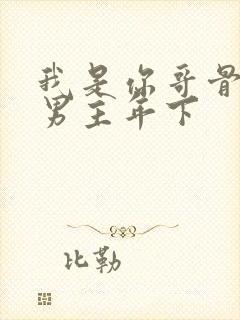 我是你哥骨
男主年下
比勒